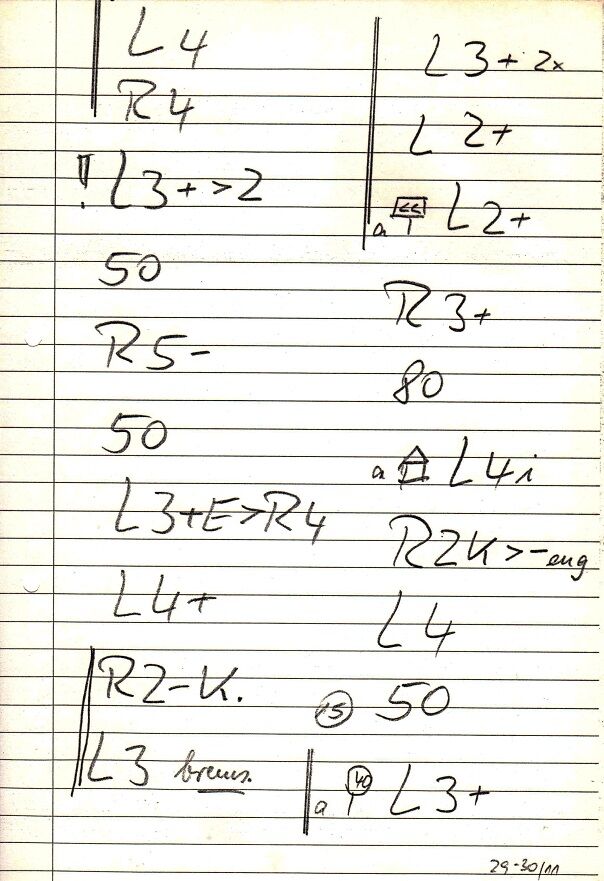 L4
R4
! L3+>2
50
R5-
50
L3+E>R4
L4+
R2-K.
L3 brems.
L3+ 2x
L 2+
a << L2+
R3+
80
a L4i
R2K>-eng
L4
15 50
a 40 L3+
29-30/11